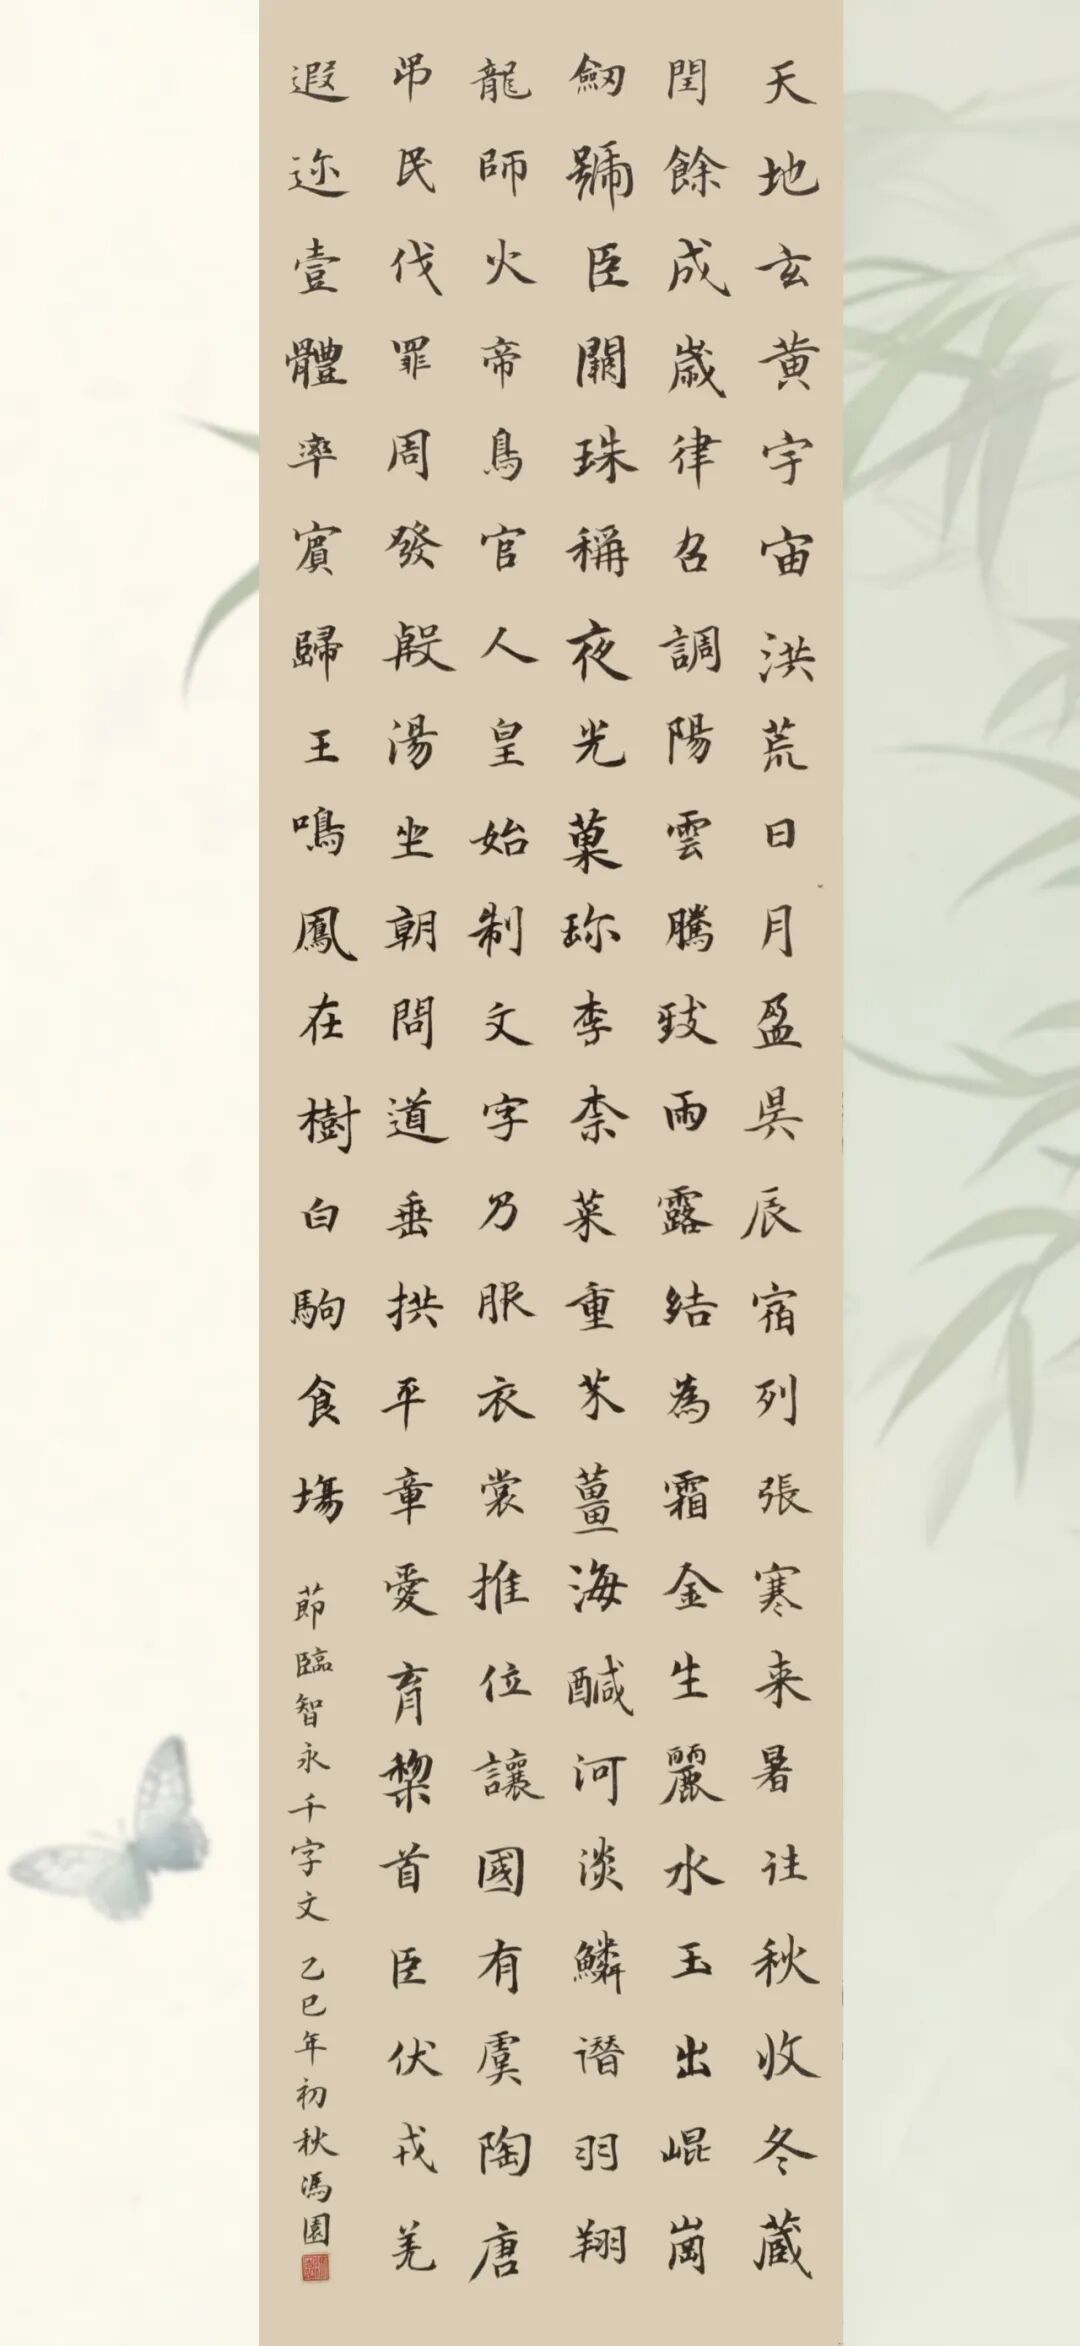 天地玄黃宇宙洪荒日月盈昃辰宿列張寒来暑往秋收冬藏
閏餘成歲律召調陽雲騰致雨露結為霜金生麗水玉出崐崗
劒號臣闕珠稱夜光菓珎李柰菜重芥薑海醎河淡鱗潛羽翔
龍師火帝鳥官人皇始制文字乃服衣裳推位讓國有虞陶唐
弔民伐罪周發殷湯坐朝問道垂拱平章愛育黎首臣伏戎羌
遐迩壹體率賓歸王鳴鳳在樹白駒食場
莭臨智永千字文乙巳年初秋馮園